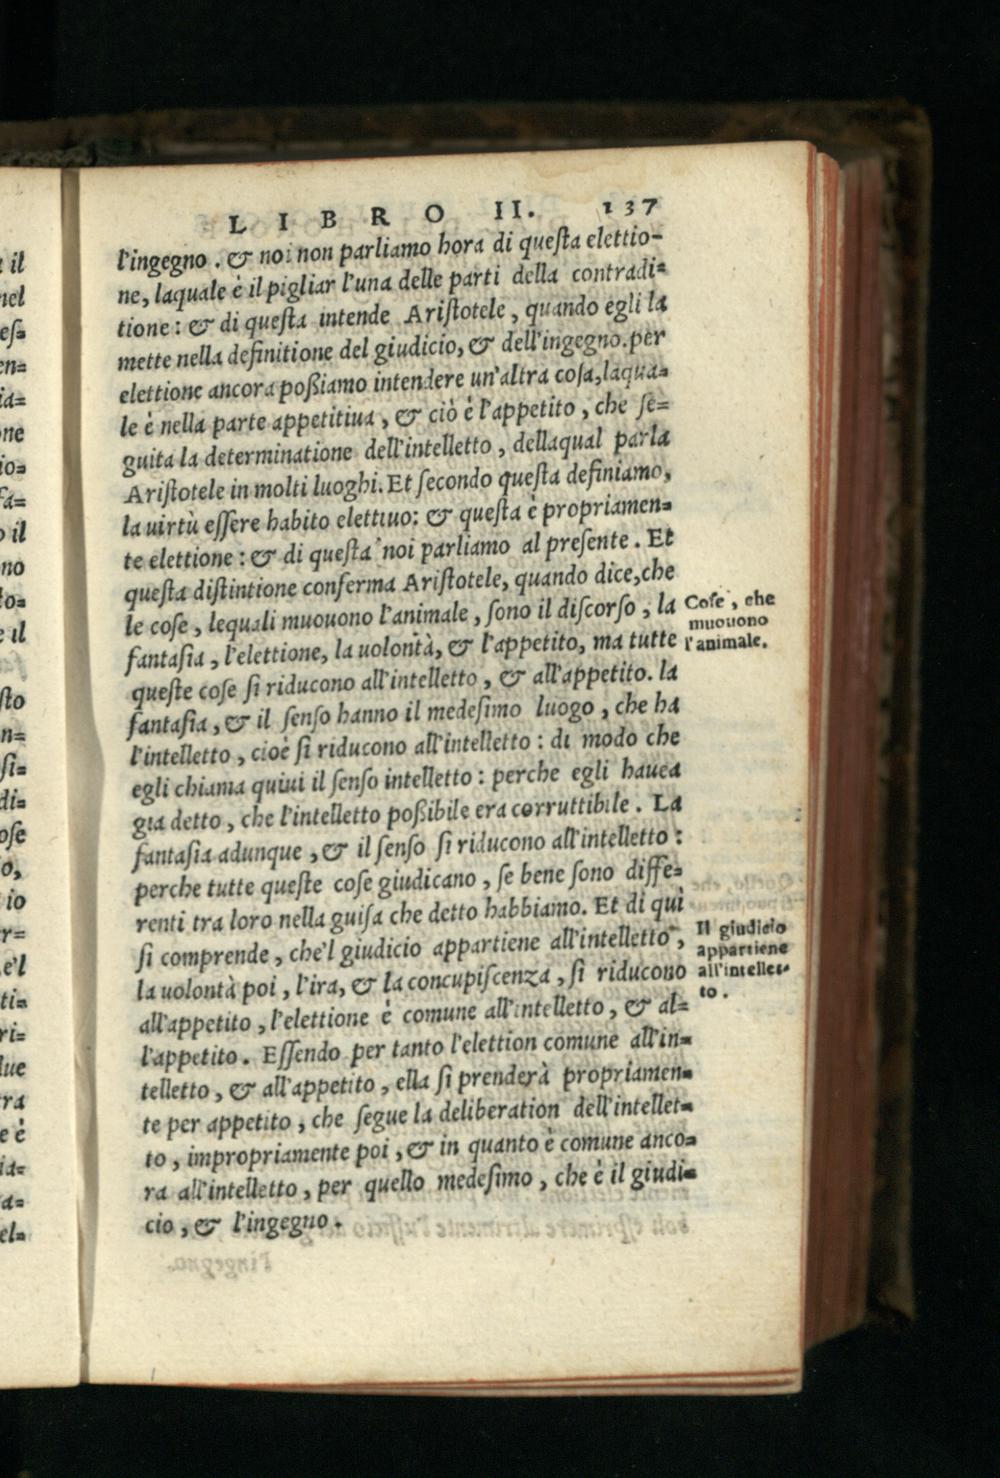 LIBRO II. 137
l'ingegno. & noi non parliamo hora di queſta elettio-
ne, laquale è il pigliar l'una delle parti della contradi-
tione: & di queſta intende Ariſtotele, quando egli la
mette nella definitione del giudicio, & dell'ingegno. per
elettione ancora poßiamo intendere un'altra coſa, laqua-
le è nella parte appetitiua, & ciò è l'appetito, che ſe-
guita la determinatione dell'intelletto, dellaqual parla
Ariſtotele in molti luoghi. Et ſecondo queſta definiamo,
la uirtù eſſere habito elettiuo: & queſta è propriamen-
te elettione: & di queſta noi parliamo al preſente. Et
queſta diſtintione conferma Ariſtotele, quando dice, che
le coſe, lequali muouono l'animale, ſono il diſcorſo, la
fantaſia, l'elettione, la uolontà, & l'appetito, ma tutte
queſte coſe ſi riducono all'intelletto, & all'appetito. la
fantaſia, & il ſenſo hanno il medeſimo luogo, che ha
l'intelletto, cioè ſi riducono all'intelletto: di modo che
egli chiama quiui il ſenſo intelletto: perche egli hauea
gia detto, che l'intelletto poßibile era corruttibile. La
fantaſia adunque, & il ſenſo ſi riducono all'intelletto:
perche tutte queſte coſe giudicano, ſe bene ſono diffe-
renti tra loro nella guiſa che detto habbiamo. Et di quì
ſi comprende, che'l giudicio appartiene all'intelletto,
la uolontà poi, l'ira, & la concupiſcenza, ſi riducono
all'appetito, l'elettione è comune all'intelletto, & al-
l'appetito. Eſſendo per tanto l'elettion comune all'in-
telletto, & all'appetito, ella ſi prenderà propriamen-
te per appetito, che ſegue la deliberation dell'intellet-
to, impropriamente poi, & in quanto è comune anco-
ra all'intelletto, per quello medeſimo, che è il giudi-
cio, & l'ingegno.
Coſe, che
muouono
l'animale.
Il giudicio
appartiene
all'intellet-
to.